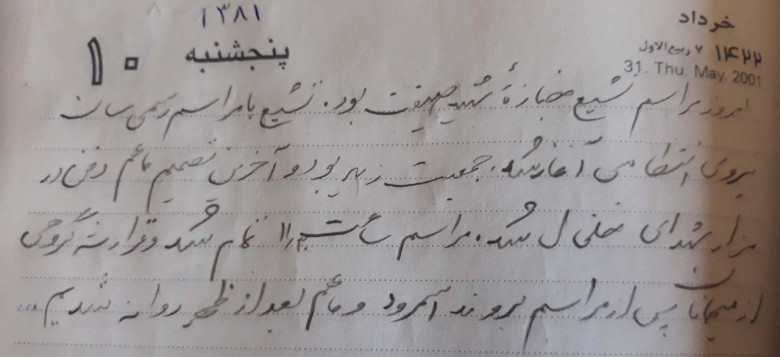 خرداد
۱۳۸۱
پنجشنبه
۱۰
۱۴۲۲ ۷ ربیع الاول
31. Thu. May. 2001
امروز مراسم تشییع جنازهٔ شهید حقیقت بود. تشییع با مراسم رسمی سان
نیروی انتظامی آغاز شد. جمعیت زیاد بود و آخرین تصمیم ما هم دفن در
مزار شهدای خلخال شد. مراسم ساعت ۱۱ تمام شد و قرار شد گروهی
از میهمانان پس از مراسم بروند اسمرود و ما هم بعد از ظهر روانه شدیم...